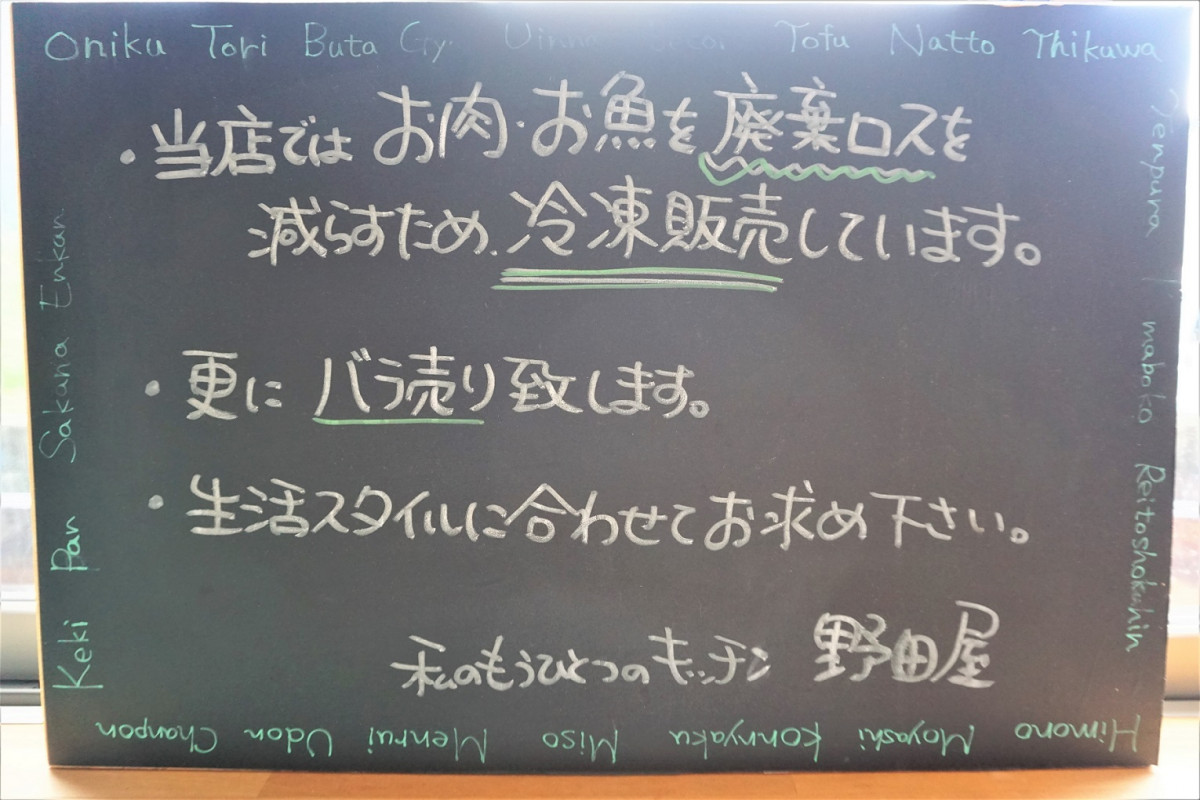 Oniku Tori Buta Tofu Natto Thikuwa
・当店では お肉・お魚を 廃棄ロスを
減らすため、冷凍販売しています。
・更に バラ売り致します。
・生活スタイルに合わせてお求め下さい。
私のもうひとつのキッチン 野田屋
Tenpura maboko Reitoshokuhin
Himono Moyashi Konnyaku Miso Menrui Udon Chanpon
Keki Pan Sakana Enkan